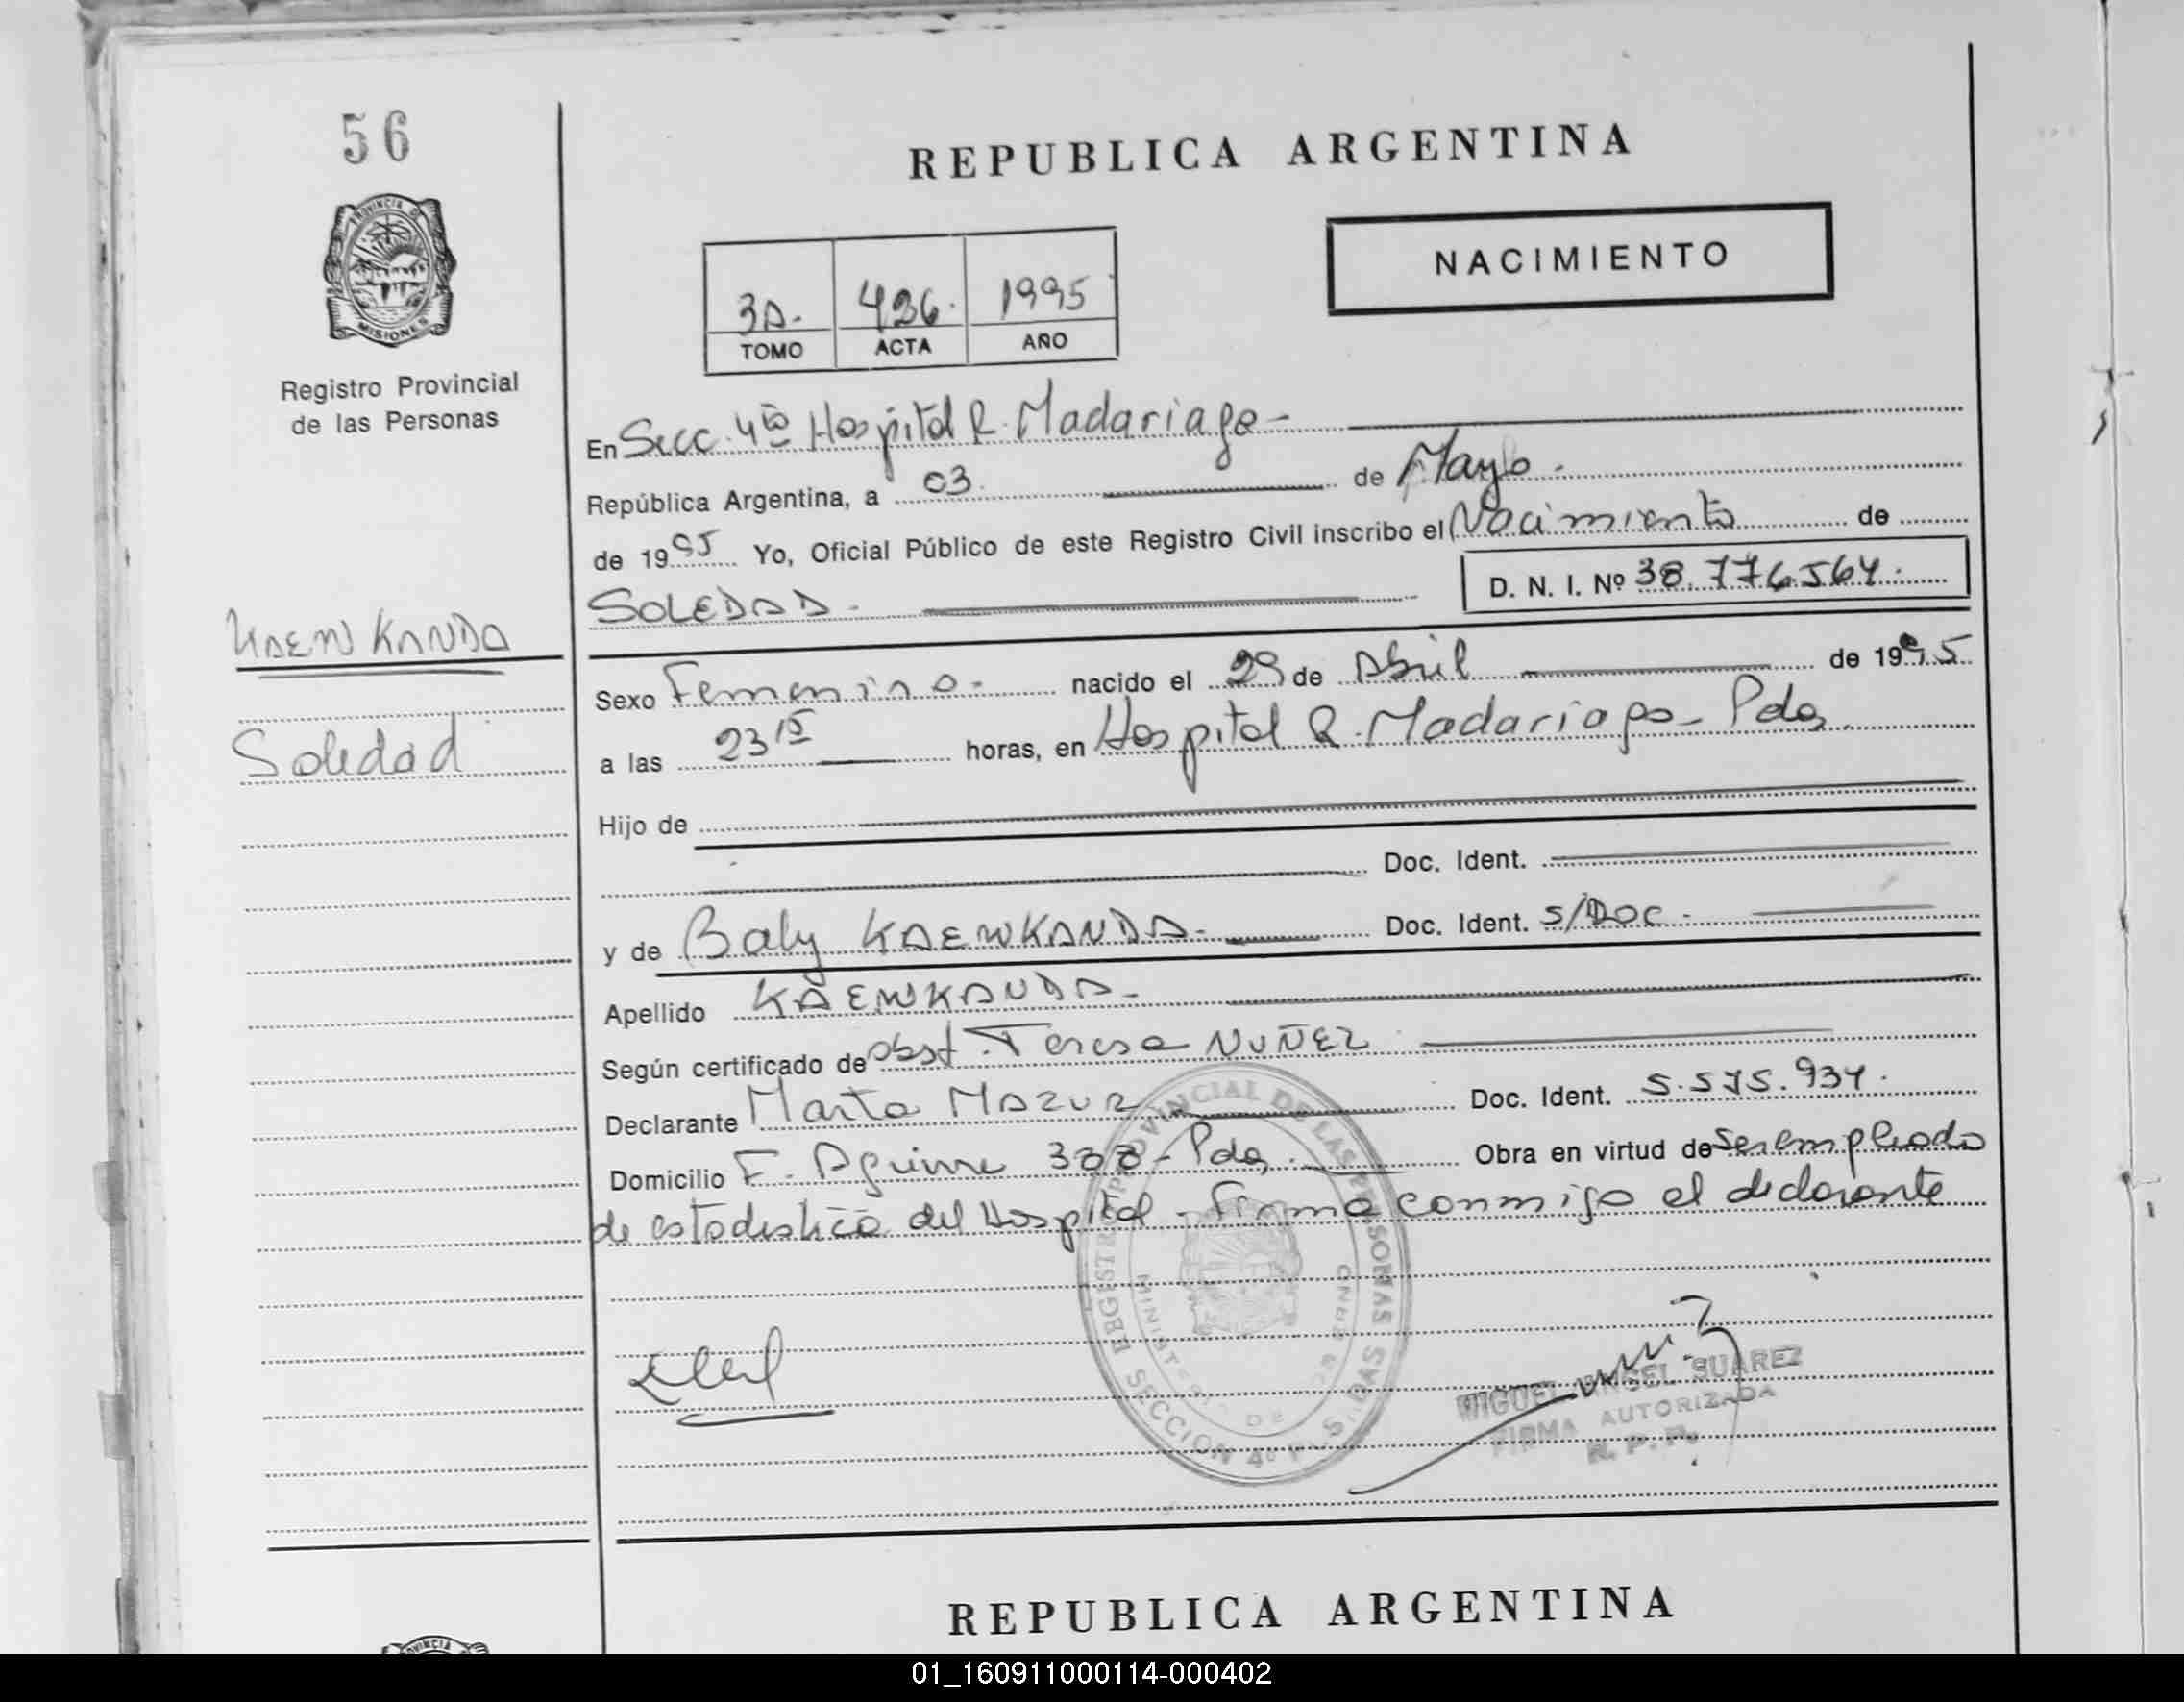 56
REPUBLICA ARGENTINA
PROVINCIA DE
MISIONES
Registro Provincial
de las Personas
NACIMIENTO
3A. 426. 1995
TOMO ACTA AÑO
En Secc. 4ta Hospital R. Madariaga -
República Argentina, a 03. de Mayo.
de 1995 Yo, Oficial Público de este Registro Civil inscribo el Nacimiento de
SOLEDAD - D. N. I. Nº 38.776.564.
KAEWKANDA
Soledad
Sexo Femenino - nacido el 29 de Abril de 1995
a las 23 15 horas, en Hospital R. Madariaga - Pdas.
Hijo de
Doc. Ident.
y de Baly KAEWKANDA - Doc. Ident. S/DOC -
Apellido KAEWKANDA -
Según certificado de obst. Teresa NUÑEZ
Declarante Marta MAZUR Doc. Ident. 5.575.934.
Domicilio F. Aguirre 388 - Pdas. Obra en virtud de ser empleada
de estadistica del Hospital - Firma conmigo el declarante
REGISTRO PROVINCIAL DE LAS PERSONAS
SECCION 4º POSADAS
MIGUEL ANGEL SUAREZ
FIRMA AUTORIZADA
R. P. P.
REPUBLICA ARGENTINA
PROVINCIA
01_160911000114-000402